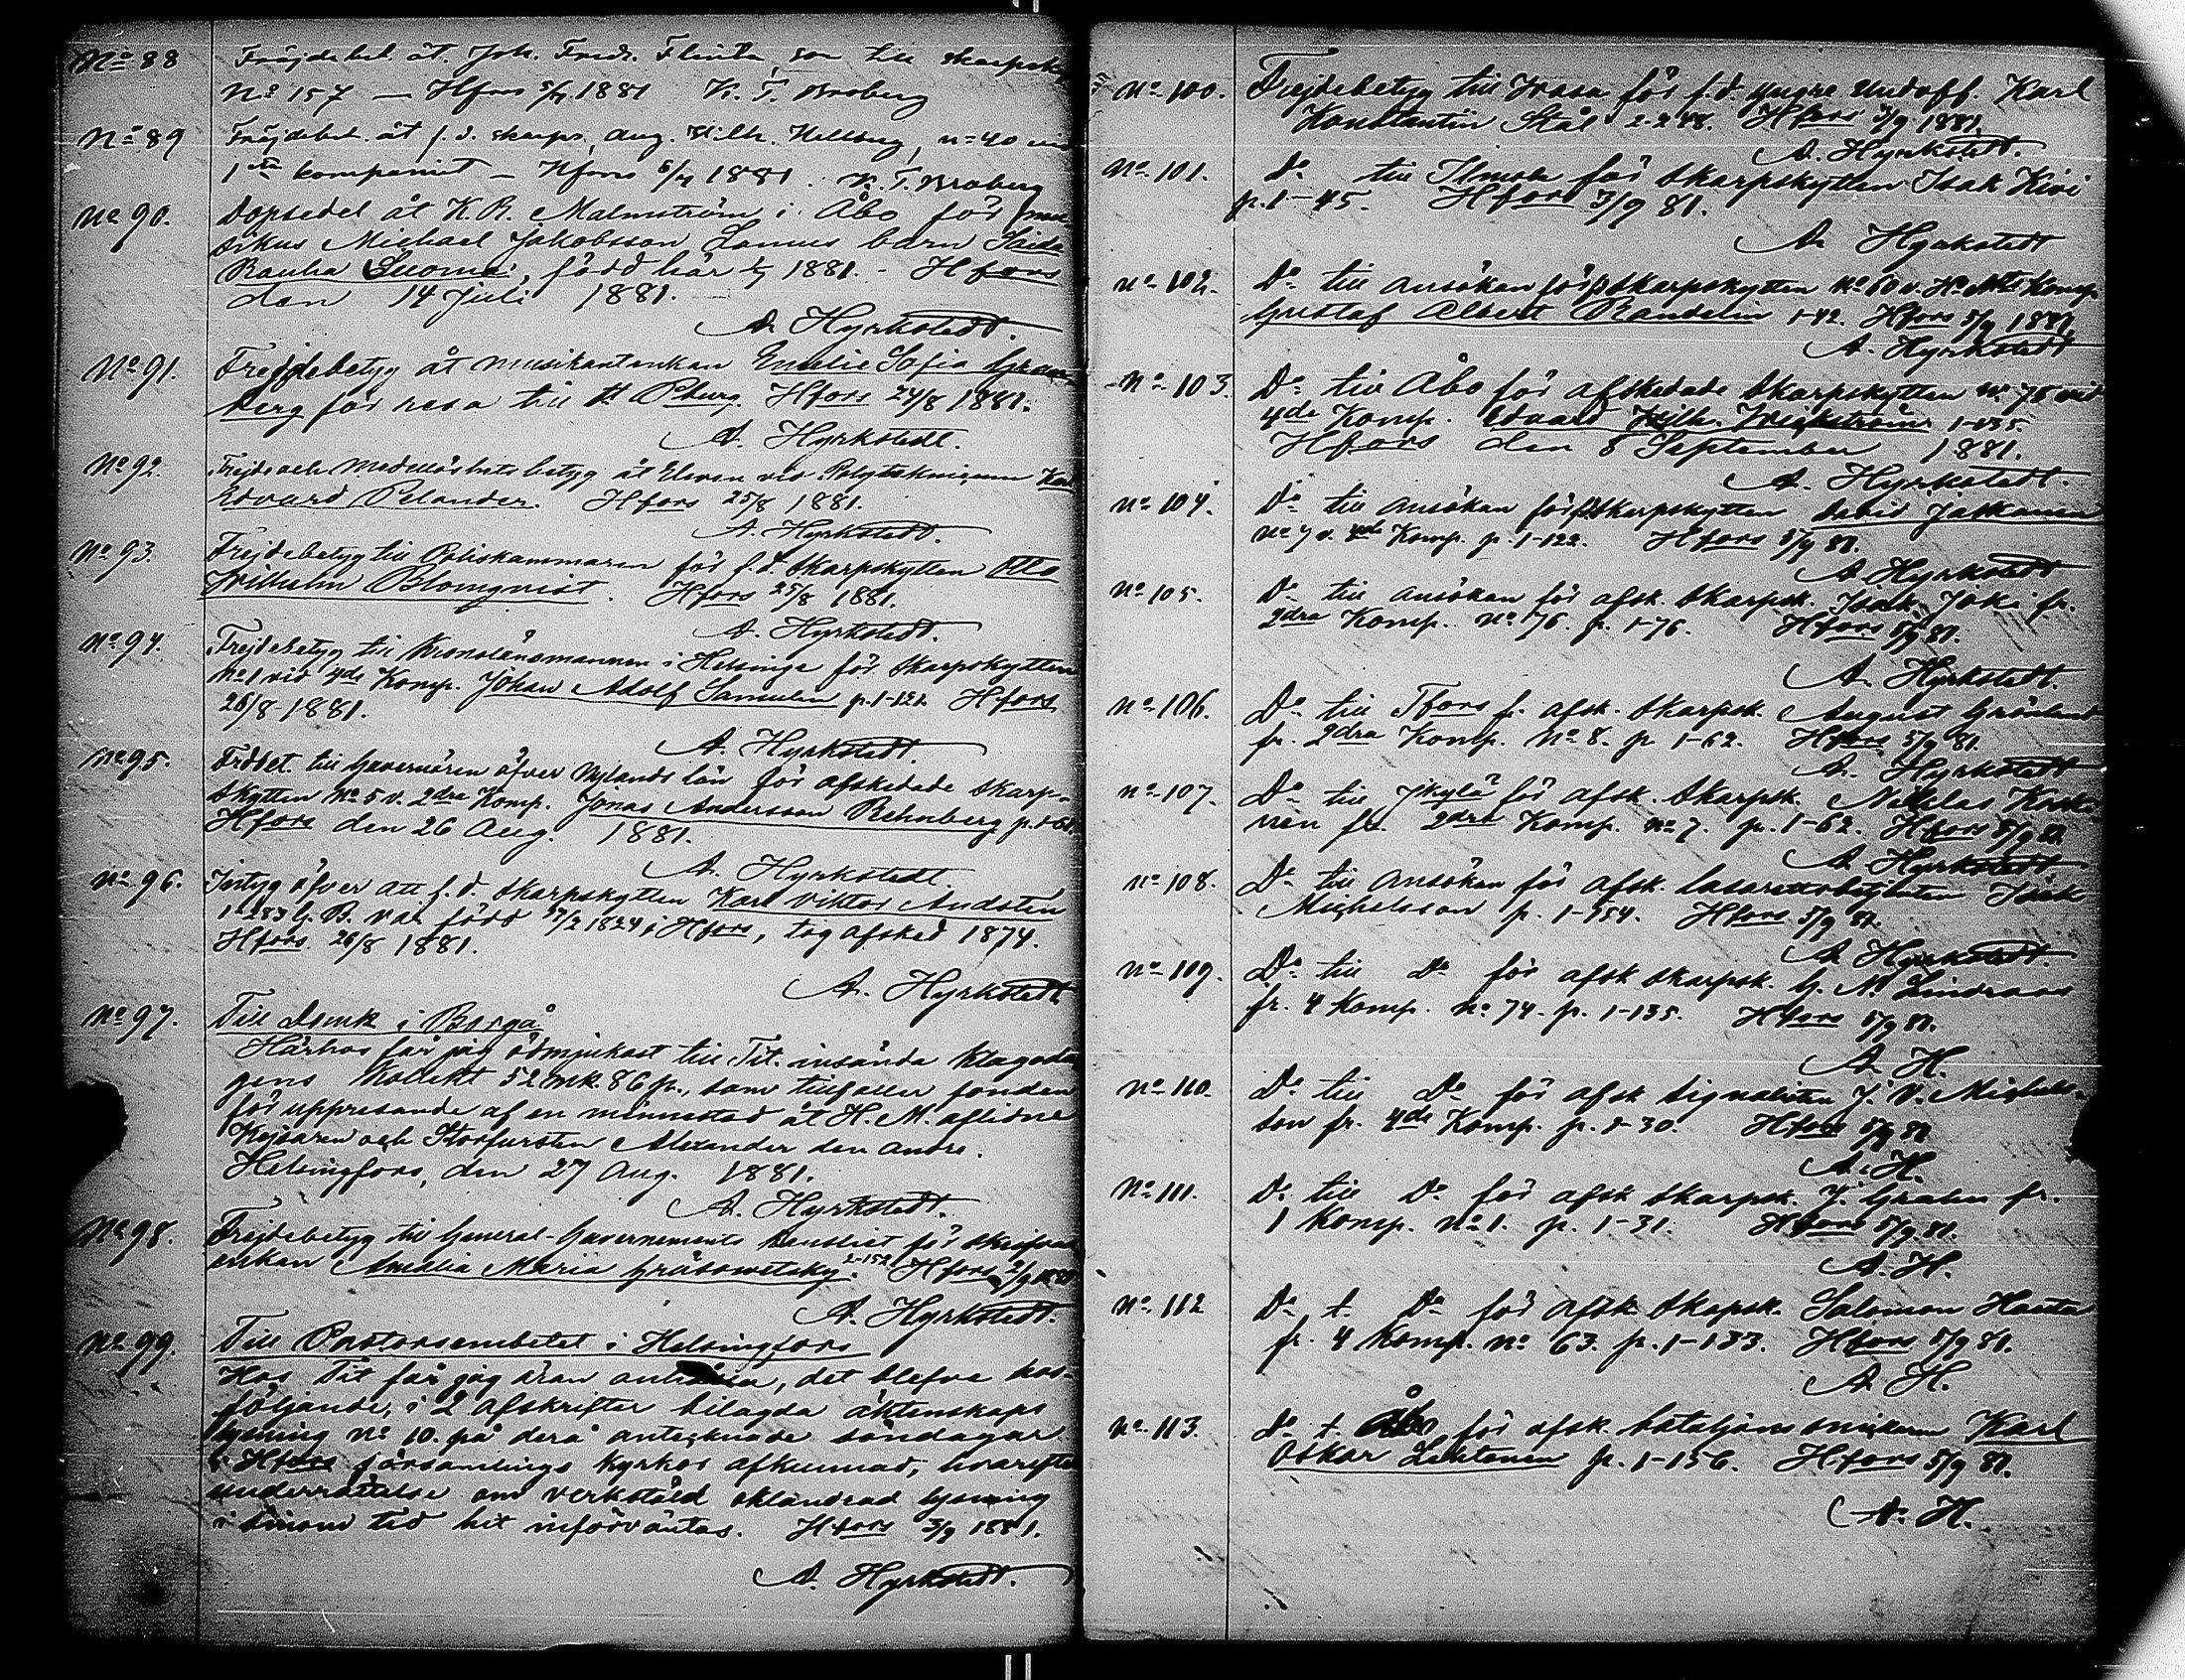 No 88 Fräjdebet. åt Joh. Fredr. Flinta, son till skarpsk.
No 157 — Hfors 5/7 1881 K. T. Broberg
No 89 Fräjdebet. åt f. d. skarps. Aug. Wilh. Hellberg, n=40 vid
1sta kompaniet — Hfors 6/7 1881. K. T. Broberg
No 90. Dopsedel åt K. R. Malmström i Åbo för mu-
sikus Michael Jakobsson Lamus barn Saida
Rauha Suoma, född här 1881. - Hfors
den 14 Juli 1881.
A. Hyrkstedt.
No 91. Frejdebetyg åt musikantenkan Emelie Sofia
berg för resa till St Pburg. Hfors 24/8 1881.
A. Hyrkstedt.
No 92. Frejde och Medellöshets betyg åt Eleven vid Polyteknicum Karl
Edvard Pelander. Hfors 25/8 1881.
A. Hyrkstedt.
No 93. Frejdebetyg till Poliskammaren för f.d. Skarpskytten Otto
Wilhelm Blomqvist. Hfors 25/8 1881.
A. Hyrkstedt.
No 94. Frejdebetyg till Kronolänsmannen i Helsinge för Skarpskytten
No 1 vid 4de Komp. Johan Adolf Samulin p. 1-121. Hfors
26/8 1881.
A. Hyrkstedt.
No 95. Frdbet. till Guvernören öfver Nylands län för afskedade Skarp-
skytten No 5 v. 2dra Komp. Jonas Andersson Rehnberg p. 1-61.
Hfors den 26 Aug. 1881.
A. Hyrkstedt.
No 96. Intyg öfver att f. d. Skarpskytten Karl Viktor Andsten
1-283 G. B. var född 7/2 1824 i Hfors, tog afsked 1874.
Hfors 26/8 1881.
A. Hyrkstedt.
No 97. Till Domk i Borgå
Härhos får jag ödmjukast till Tit. insända Klagoda-
gens Kollekt 52 mk. 86 p., som tillfaller fonden
för uppresande af en minnestod åt H. M. aflidne
Kejsaren och Storfursten Alexander den andre.
Helsingfors, den 27 Aug. 1881.
A. Hyrkstedt.
No 98. Frejdebetyg till General-Guvernements Kansliet för
enkan Amalia Maria Gräsowetsky. 2-152 Hfors 2/9 1881
A. Hyrkstedt.
No 99. Till Pastorsembetet i Helsingfors
Hos Tit får jag äran anhålla, det blefve hos-
följande, i 2 afskrifter bilagda äktenskaps
lysning No 10. på derå antecknade söndagar
i Hfors församlings kyrkor afkunnad, hvarefter
underrättelse om verkstäld oklandrad lysning
i sinom tid hit införväntas. Hfors 3/9 1881.
A. Hyrkstedt.
No 100. Frejdebetyg till Wasa för f.d. yngre Undoff. Karl
Konstantin Stål 2-248. Hfors 3/9 1881.
A. Hyrkstedt.
No 101. Do till Ilmola för Skarpskytten Isak Kivi
p. 1-45. Hfors 3/9 81.
A. Hyrkstedt
No 102. Do till ansökan för Skarpskytten No 60 v. H. Mts Komp.
Gustaf Albert Randelin 1-42. Hfors 5/9 1881.
A. Hyrkstedt
No 103. Do till Åbo för afskedade Skarpskytten No 75 vid
4de Komp. Edvard Wilh. Wickström 1-135
Hfors den 5 September 1881.
A. Hyrkstedt.
No 104. Do till ansökan för Skarpskytten David Jaskanen
No 7 v. 4de Komp. p. 1-122. Hfors 5/9 81.
A. Hyrkstedt
No 105. Do till ansökan för afsk. Skarpsk. Isak Joki fr.
2dra Komp. No 76. p. 1-76. Hfors 5/9 81.
A. Hyrkstedt.
No 106. Do till Tfors f. afsk. Skarpsk. August Grönlund
fr. 2dra Komp. No 8. p 1-62. Hfors 5/9 81.
A. Hyrkstedt
No 107. Do till Jkylä för afsk. Skarpsk. Nikolas
nen fr. 2dra Komp. No 7. p. 1-62. Hfors 5/9 81.
A. Hyrkstedt
No 108. Do till ansökan för afsk. lasarettsbetjenten Isak
Michelsson p. 1-154. Hfors 5/9 81.
A. Hyrkstedt.
No 109. Do till Do för afsk Skarpsk. G. A. Lindroos
fr. 4 Komp. No 74. p. 1-135. Hfors 5/9 81.
A. H.
No 110. Do till Do för afsk Signalisten J. V. Michels-
son fr. 4de Komp. p. 1-30. Hfors 5/9 81
A. H.
No 111. Do till Do för afsk Skarpsk. J. Grahn fr.
1 Komp. No 1. p. 1-31. Hfors 5/9 81.
A. H.
No 112 Do t. Do för afsk Skapsk. Salomon Hasta
fr. 4 Komp. No 63. p. 1-133. Hfors 5/9 81.
A. H.
No 113. Do t. Åbo för afsk. bataljons snickaren Karl
Oskar Lehtonen p. 1-156. Hfors 5/9 81.
A. H.